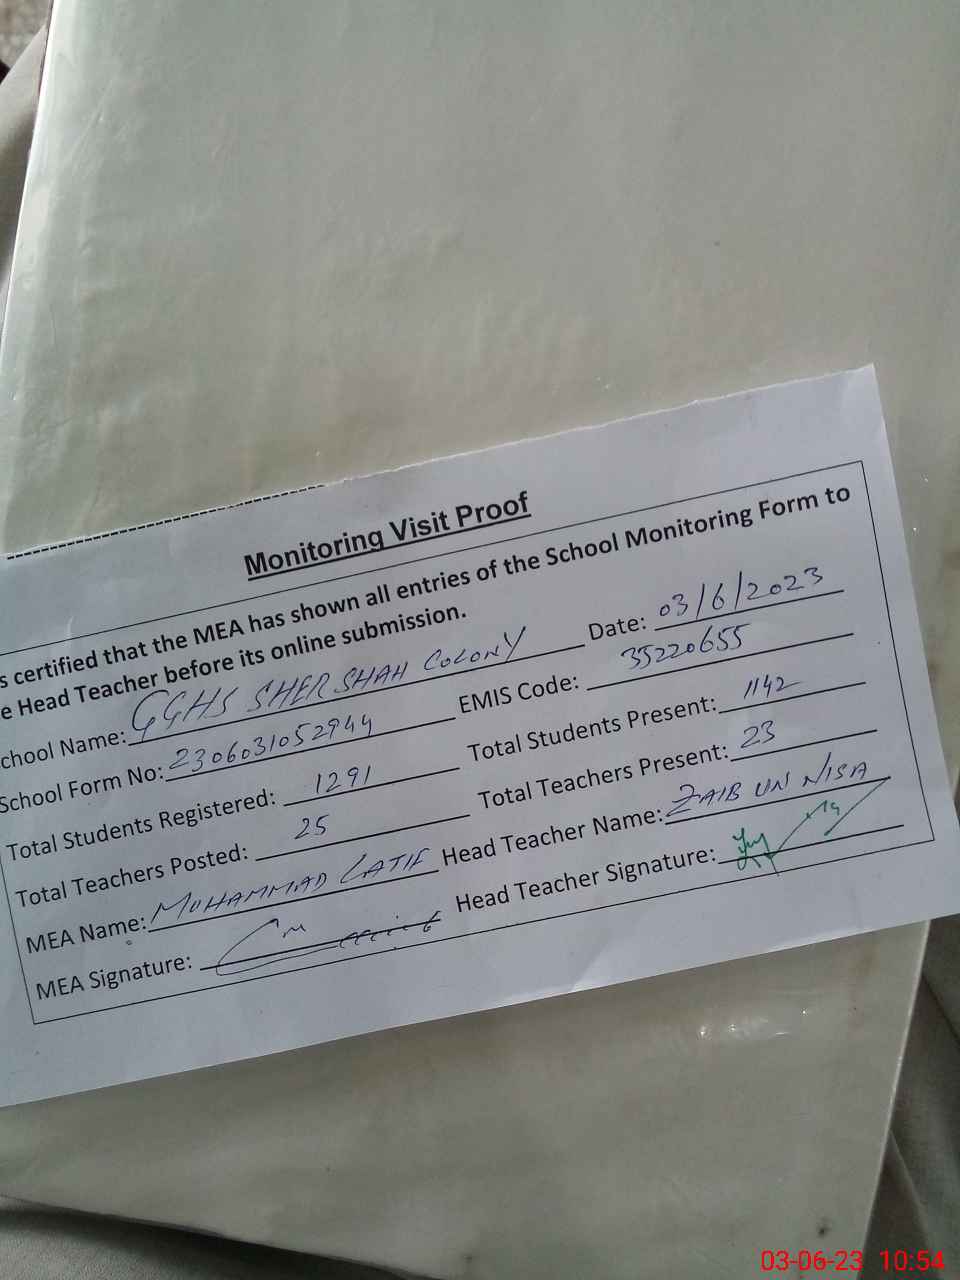 Monitoring Visit Proof
s certified that the MEA has shown all entries of the School Monitoring Form to
e Head Teacher before its online submission.
chool Name: GGHS SHER SHAH COLONY Date: 03/6/2023
School Form No: 2306031052944 EMIS Code: 35220655
Total Students Registered: 1291 Total Students Present: 1142
Total Teachers Posted: 25 Total Teachers Present: 23
MEA Name: MUHAMMAD LATIF Head Teacher Name: ZAIB UN NISA
MEA Signature: Head Teacher Signature:
03-06-23 10:54